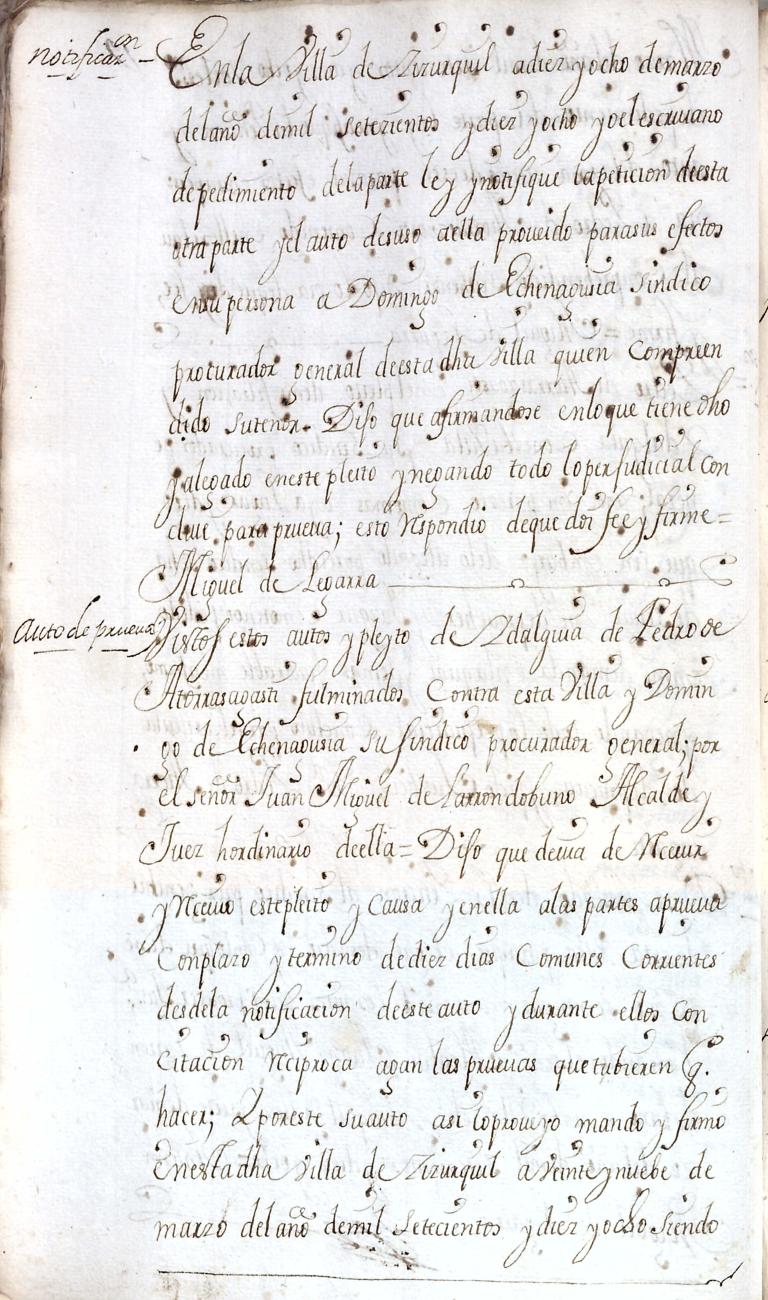 notificaz.on
En la Villa de Zizurquil a diez y ocho de marzo
del año de mil setezientos y diez y ocho yo el escriuano
de pedimiento de la parte ley y notifique la peticion de esta
otra parte y el auto de suso a ella proueido para sus efectos
en su persona a Domingo de Echenagusia sindico
procurador general de esta dha Villa quien Compreen
dido su tenor. Dijo que afirmandose en lo que tiene dho
y alegado en este pleito y negando todo lo perjudicial con
cluie para prueua; esto Respondio de que doi fee y firme=
Miguel de Legarra
Auto de prueua
Vistos estos autos y pleyto de Ydalguia de Pedro de
Atorrasagasti fulminados Contra esta Villa y Domin
go de Echenagusia su sindico procurador general; por
el señor Juan Miguel de Larrondobuno Alcalde y
Juez hordinario de ella= Dijo que deuia de Receuir
y Receuio este pleito y Causa y en ella a las partes a prueua
Con plazo y termino de diez dias Comunes Corrientes
desde la notificacion de este auto y durante ellos con
Citacion Reciproca agan las prueuas que tubieren q.
hacer; Y por este su auto asi lo proueyo mando y firmo
en esta dha Villa de Zizurquil a Veinte y nuebe de
marzo del año de mil setecientos y diez y ocho siendo